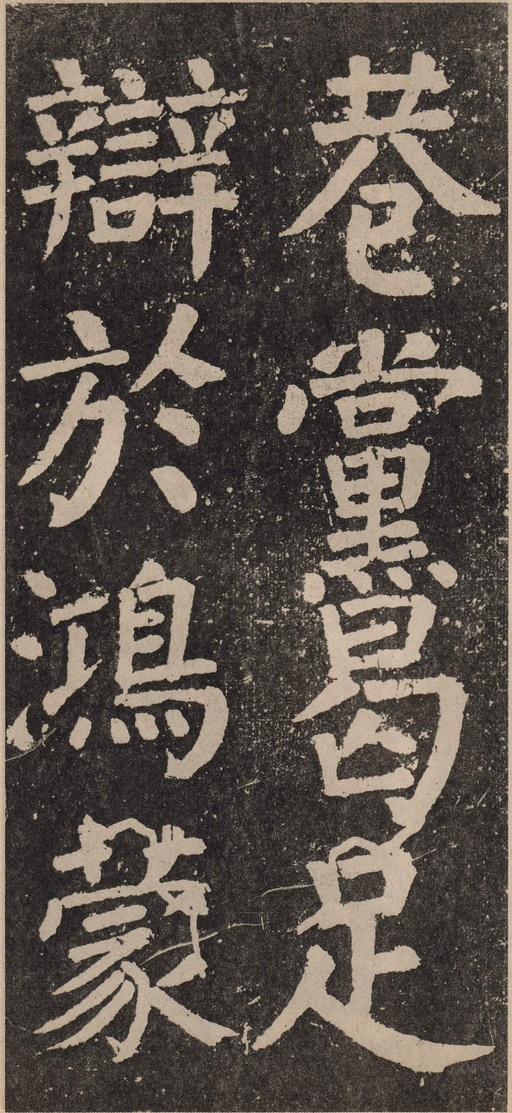 巷黨曷足
辯於鴻蒙